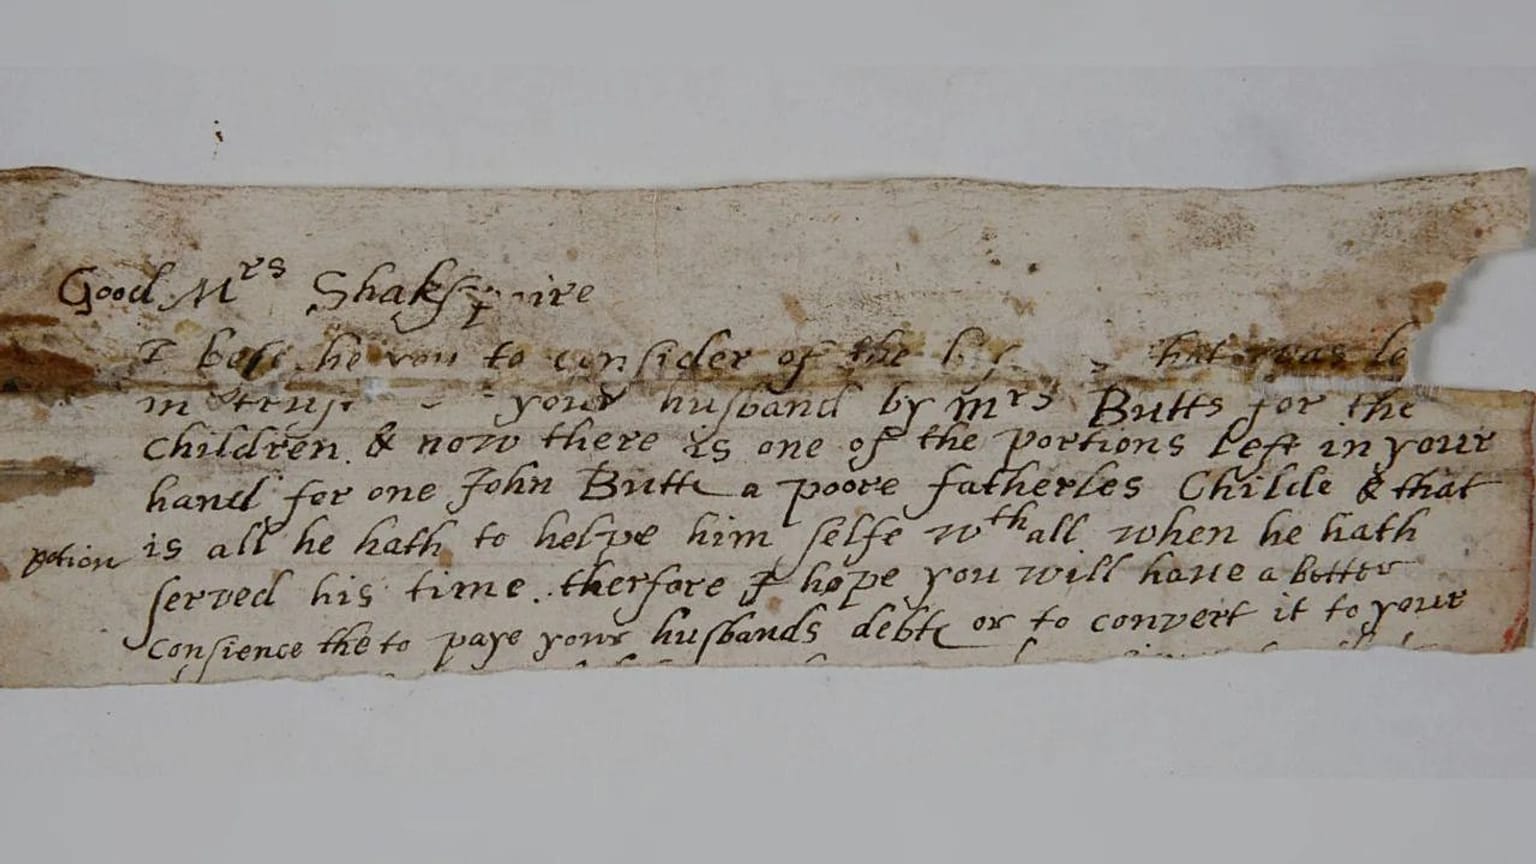 Good Mrs Shakspaire
I bese he you to consider of the that was le
in trust your husband by Mrs Butts for the
Children & now there is one of the portions left in your
hand for one John Butte a poore fatherles Childe & that
petion is all he hath to helpe him selfe wth all when he hath
served his time. therfore I hope you will haue a better
Consience the to paye your husbands debte or to convert it to your